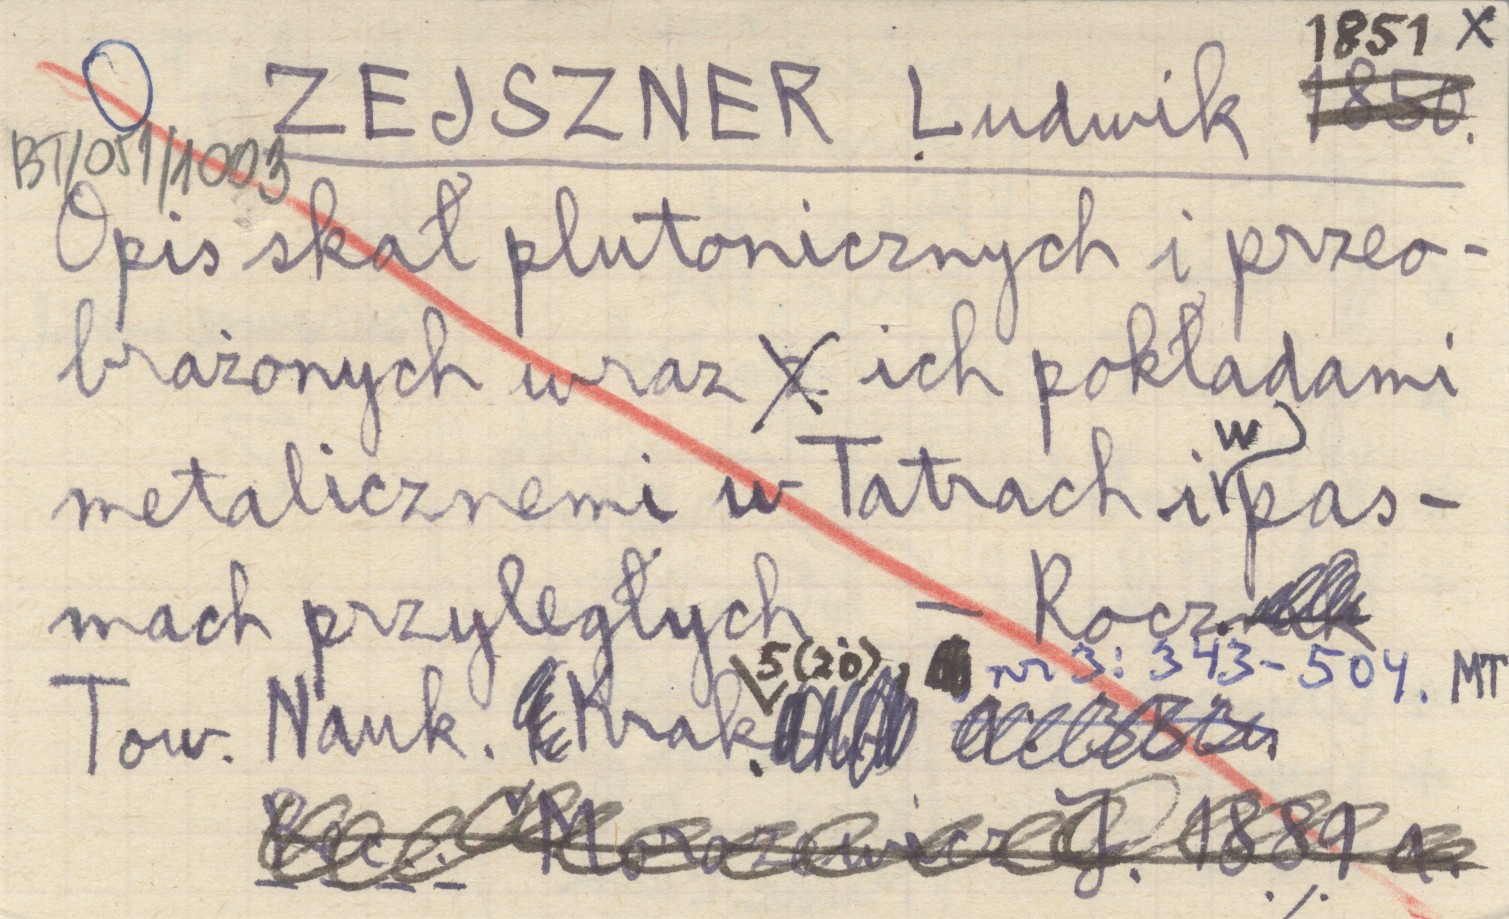 1851 x
ZEJSZNER Ludwik 1850.
BT/051/1003
Opis skał plutonicznych i przeo-
brażonych wraz z ich pokładami
metalicznemi w Tatrach i w pas-
mach przyległych - Rocz.
5(20), nr 3: 343-504. MT
Tow. Nauk. Krak.
Morozewicz J. 1889